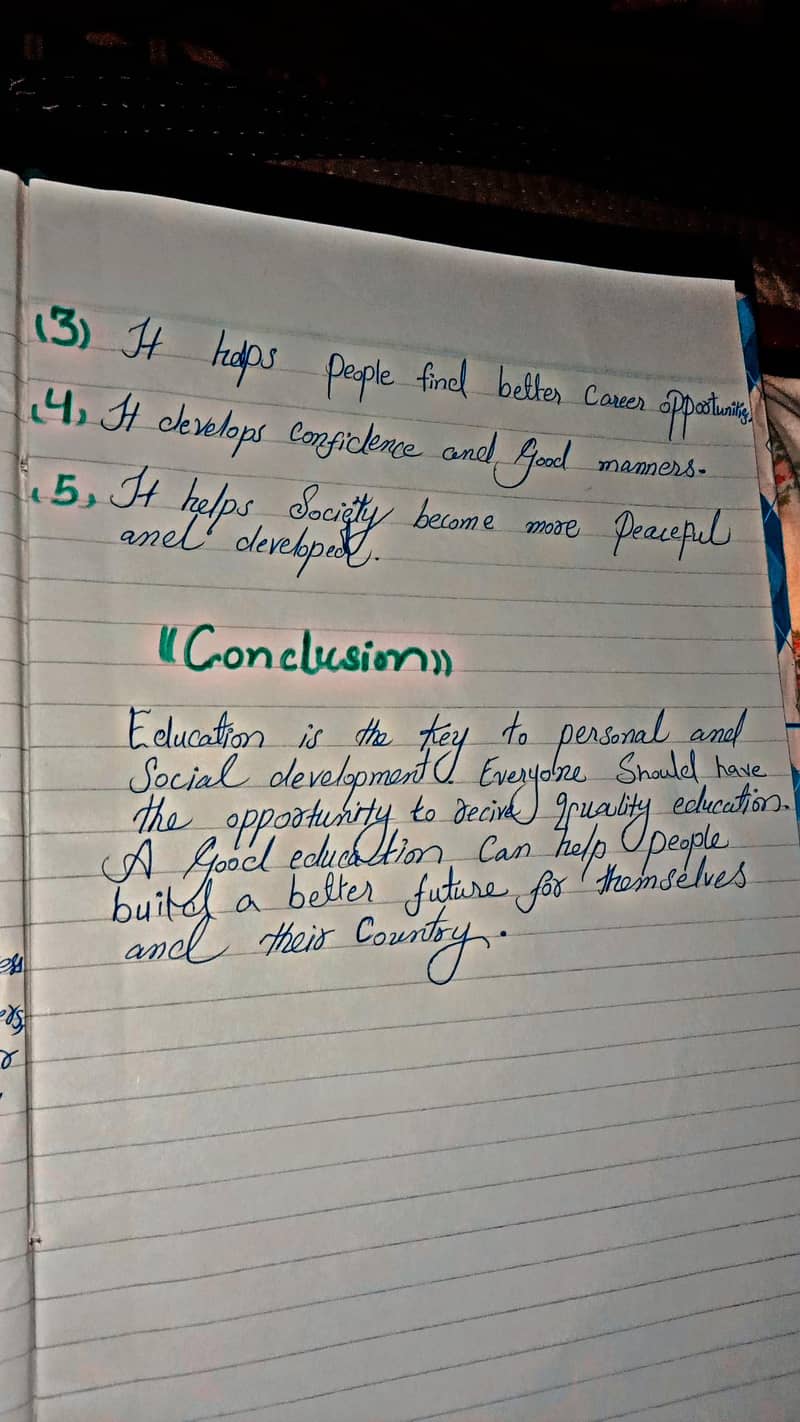 (3) It helps People find better Career opportunities.
(4) It develops Confidence and Good manners.
(5) It helps Society become more Peaceful
and developed.
"Conclusion"
Education is the key to personal and
Social development. Everyone Should have
the opportunity to recive quality education.
A Good education Can help people
build a better future for themselves
and their Country.
ess
ers
or